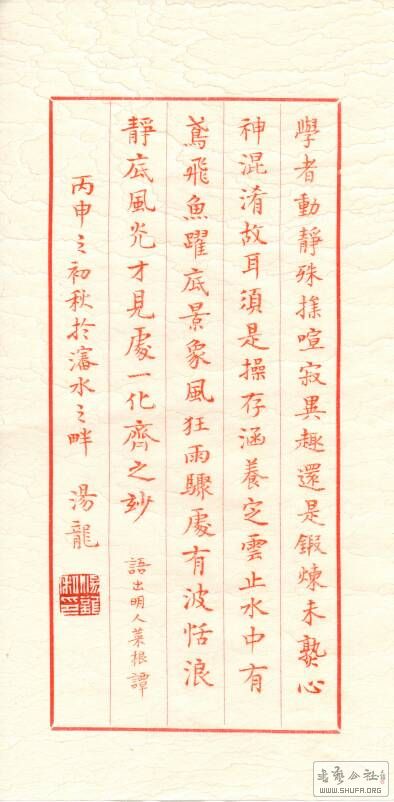 學者動靜殊操喧寂異趣還是鍛煉未熟心
神混淆故耳須是操存涵養定雲止水中有
鳶飛魚躍底景象風狂雨驟處有波恬浪
靜底風光才見處一化齊之妙
語出明人菜根譚
丙申之初秋於瀋水之畔 湯龍
書藝公社
WWW.SHUFA.ORG